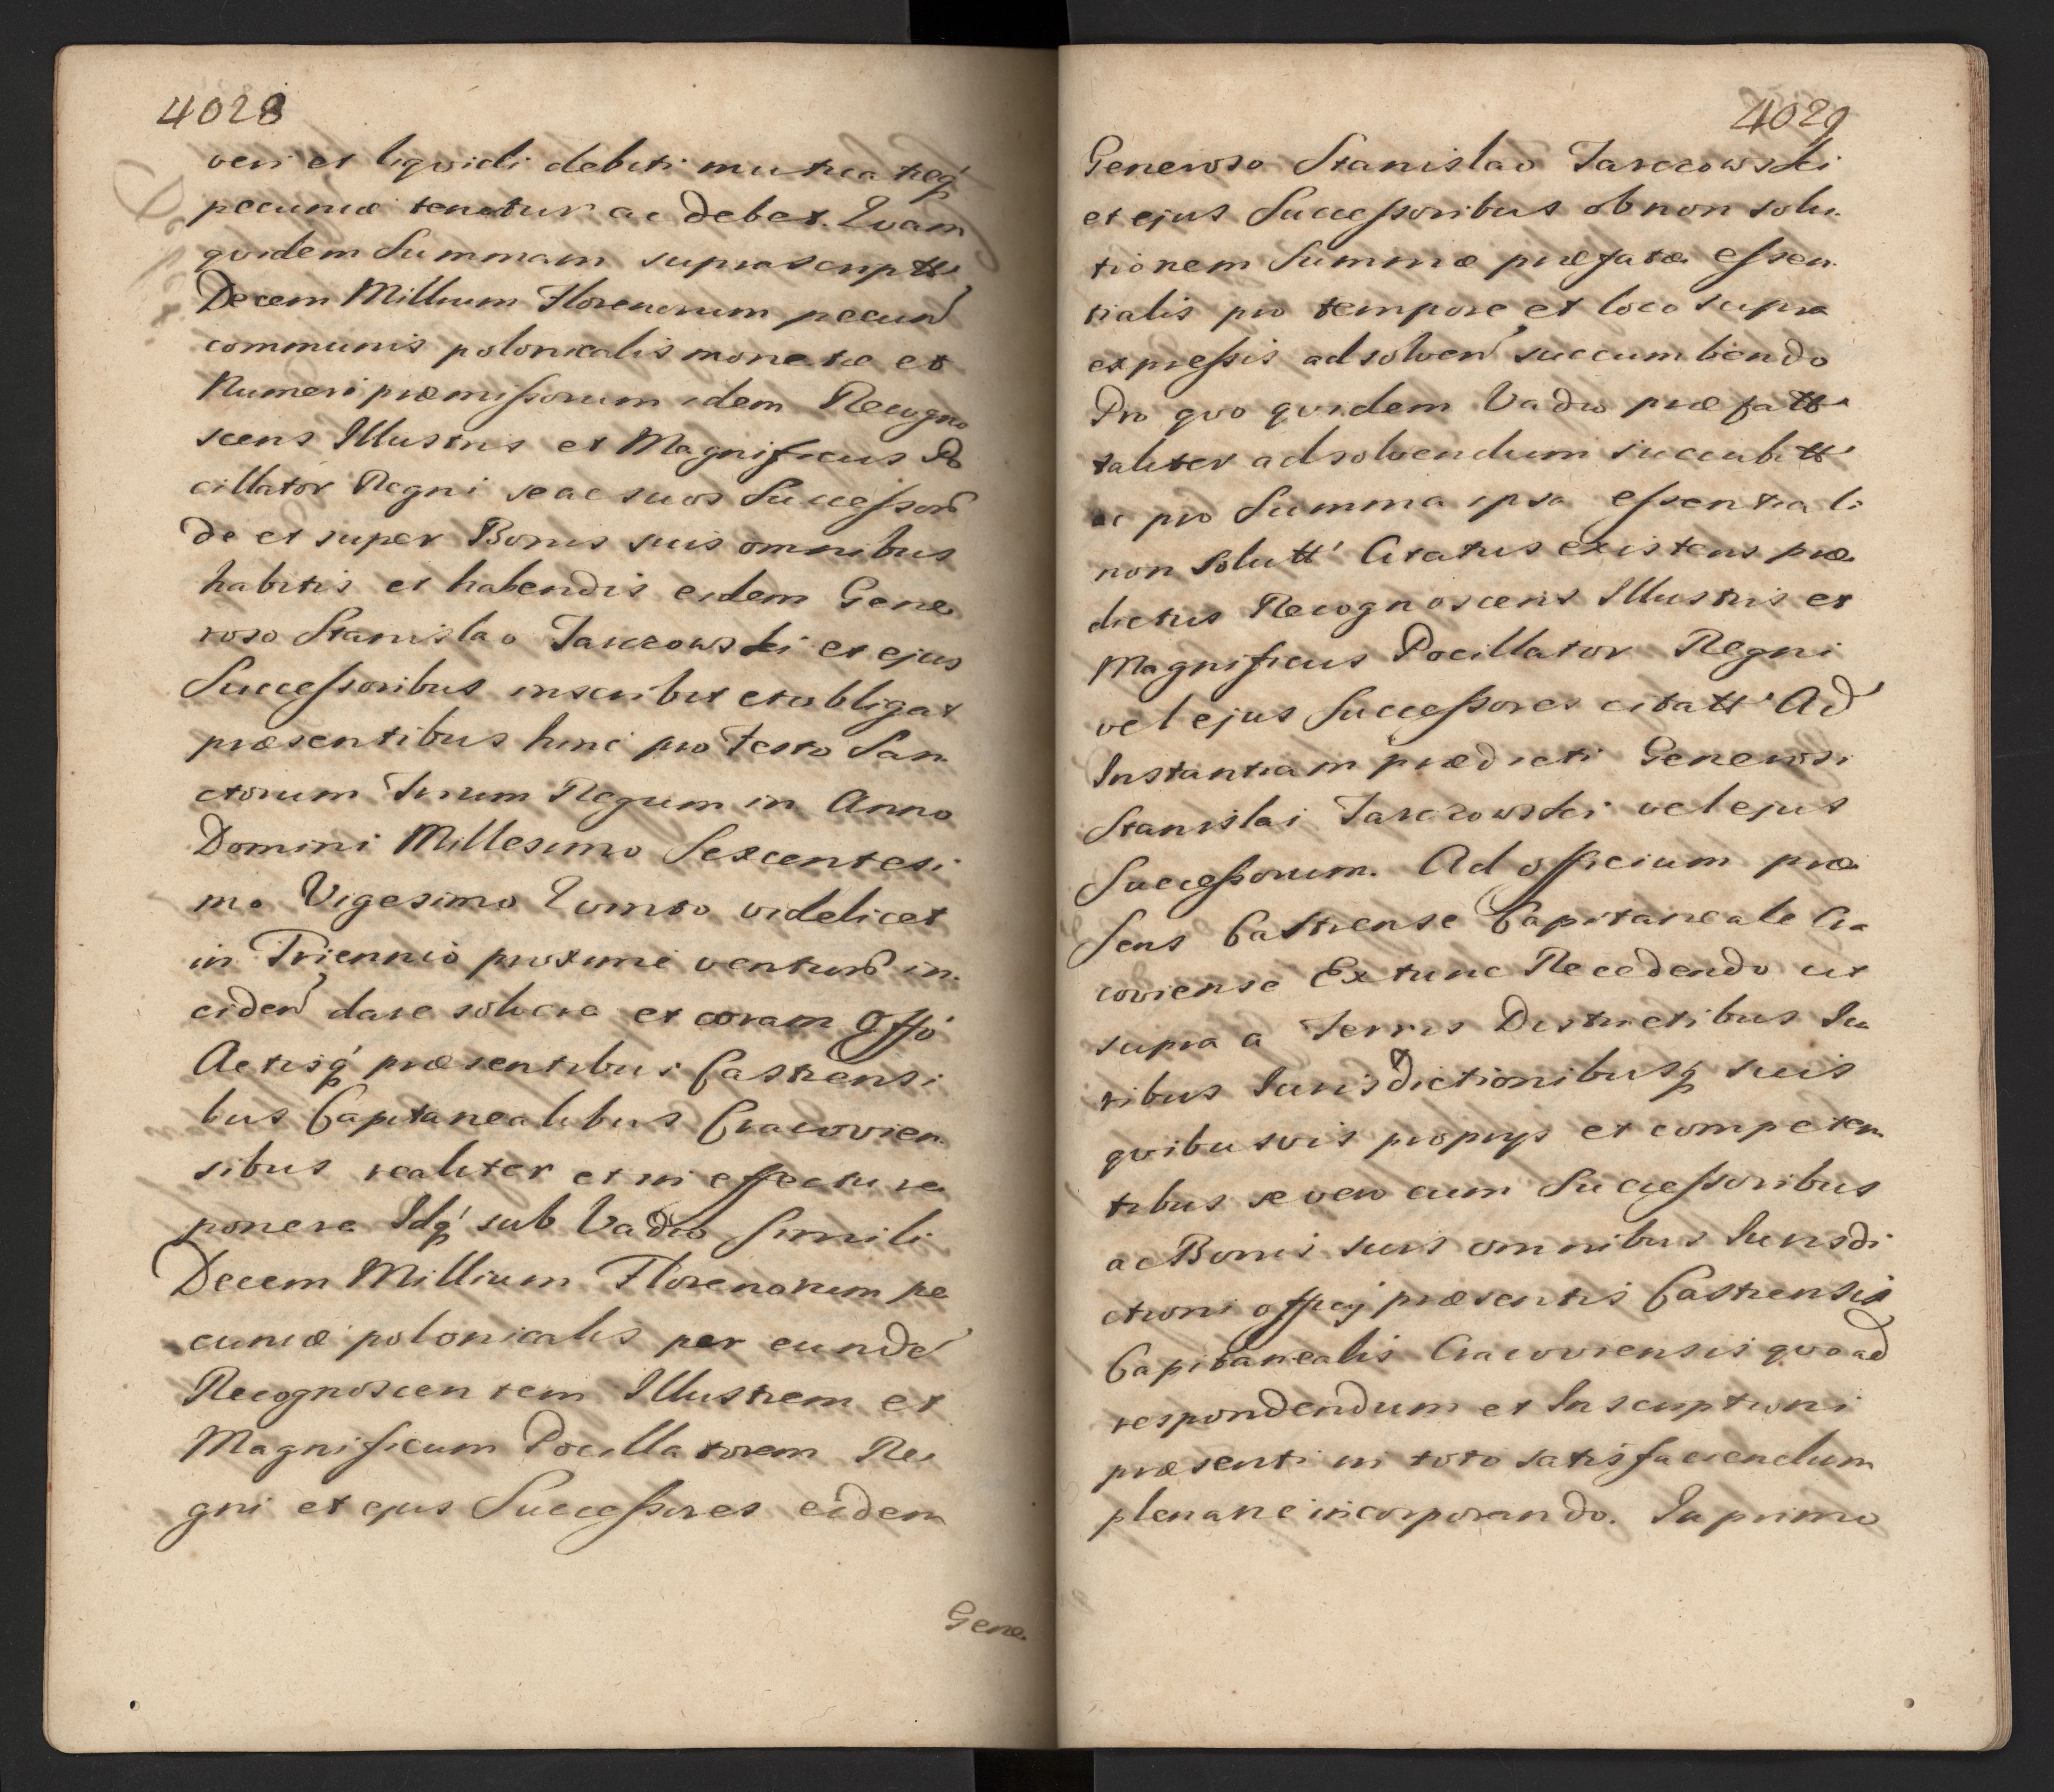 4028
veri et liqvidi debiti mutuatæq́
pecuniæ tenetur ac debet. Qvam
qvidem Summam suprascriptt'
Decem Millium Florenorum pecun
communis polonicalis monetæ et
Numeri præmissorum idem Recogno
scens Illustris et Magnificus Po
cillator Regni se ac suos Successor
de et super Bonis suis omnibus
habitis et habendis eidem Gene
roso Stanislao Jarczowski et ejus
Successoribus inscribit et obligat
præsentibus hinc pro Festo San
ctorum Trium Regum in Anno
Domini Millesimo Sexcentesi
mo Vigesimo Qvinto videlicet
in Triennio proxime ventur in
eiden dare solvere et coram Offo
Actisq́ præsentibus Castrensi
bus Capitanealibus Cracovien
sibus realiter et in effectu re
ponere Idq́ sub Vadio simili
Decem Millium Florenorum pe
cuniæ polonicalis per eunde
Recognoscentem Illustrem et
Magnificum Pocillatorem Re
gni et ejus Successores eidem
Gene
4029
Generoso Stanislao Jarczowski
et ejus Successoribus ob non solu
tionem Summæ præfatæ essen
tialis pro tempore et loco supra
expressis ad solven succumbendo
Pro qvo qvidem Vadio præfatt'
taliter ad solvendum succubitt'
ac pro Summa ipsa essentiali
non solutt' Citatus existens præ
dictus Recognoscens Illustris et
Magnificus Pocillator Regni
vel ejus Successores citatt' Ad
Instantiam prædicti Generosi
Stanislai Jarczowski vel ejus
Successorum. Ad officium præ
sens Castrense Capitaneale Cra
coviense Ex tunc Recedendo ut
supra a Terris Districtibus Iu
ribus Iurisdictionibusq́ suis
qvibusvis proprijs et competen
tibus se vero cum Successoribus
ac Bonis suis omnibus Iurisdi
ctioni officij præsentis Castrensis
Capitanealis Cracoviensis qvo ad
respondendum et Inscriptioni
præsenti in toto satisfaciendum
plenarie incorporando. In primo